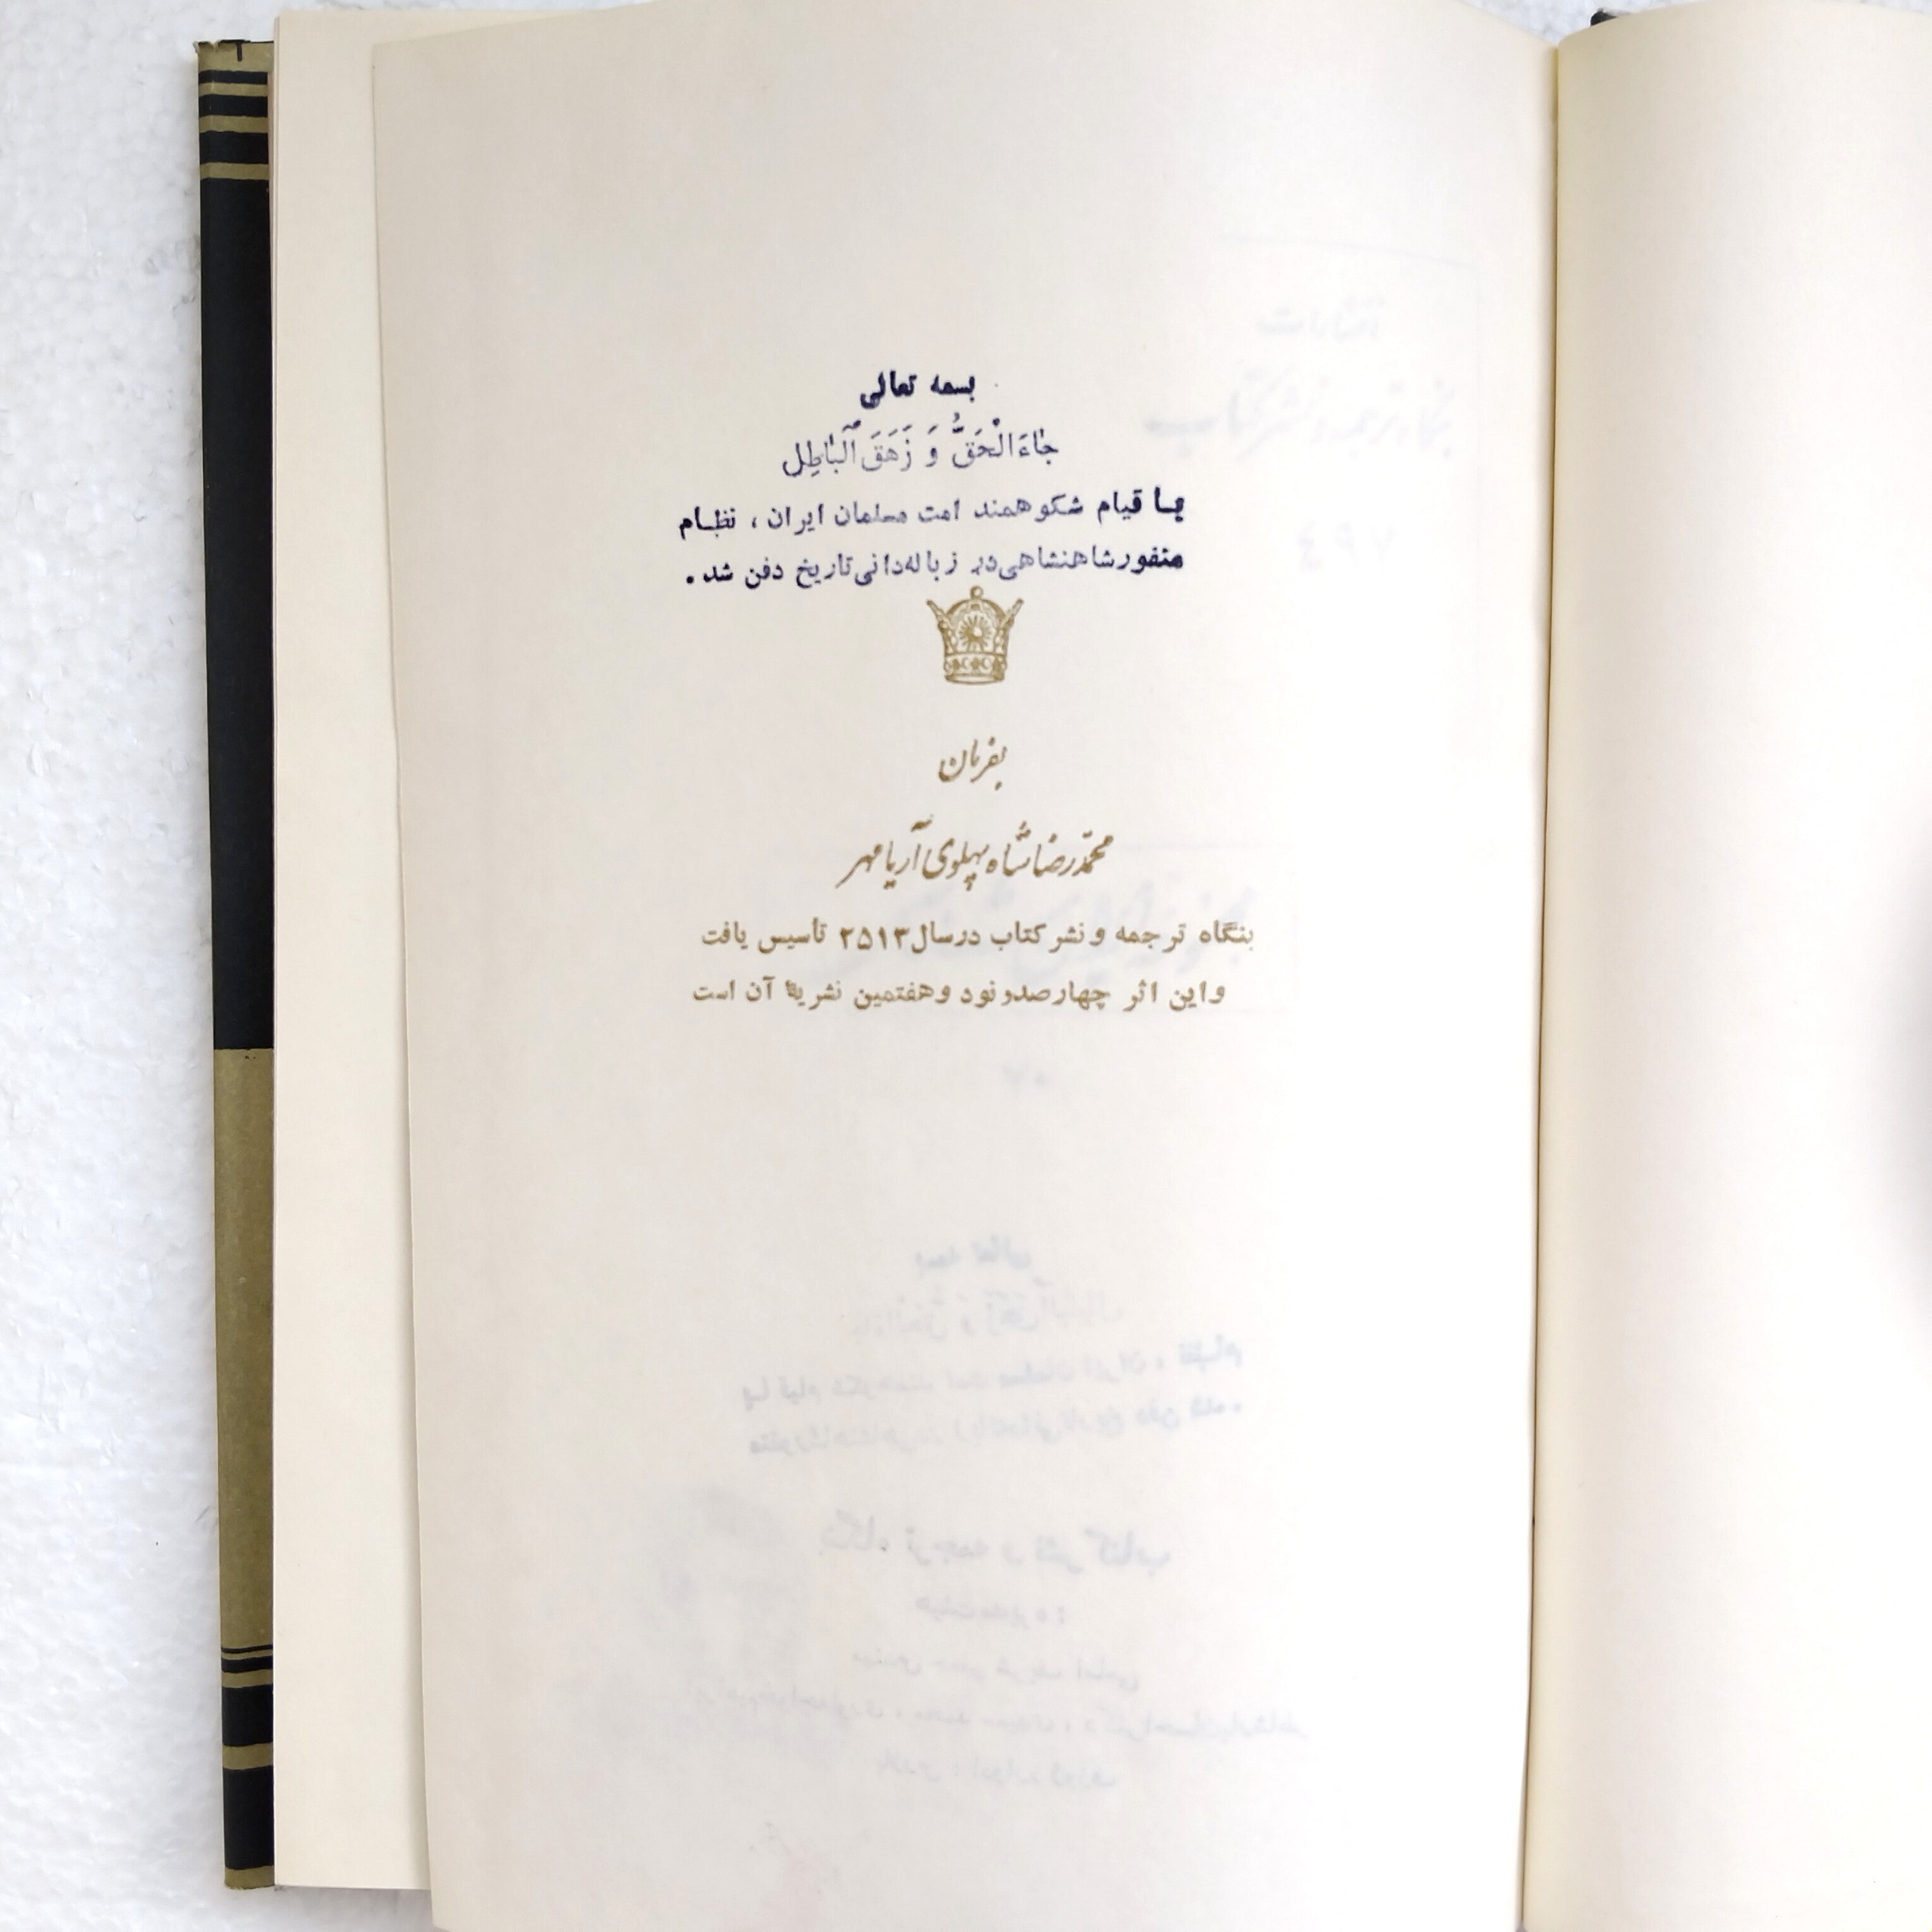 بسمه تعالی
جٰاءَ الْحَقُّ وَ زَهَقَ الْبٰاطِل
بـا قیام شکوهمند امت مسلمان ایران ، نظـام
منفور شاهنشاهی در زباله‌دانی تاریخ دفن شد .
بفرمان
محمّدرضا شاه پهلوی آریامهر
بنگاه ترجمه و نشر کتاب در سال ۲۵۱۳ تأسیس یافت
و این اثر چهارصد و نود و هفتمین نشریهٔ آن است